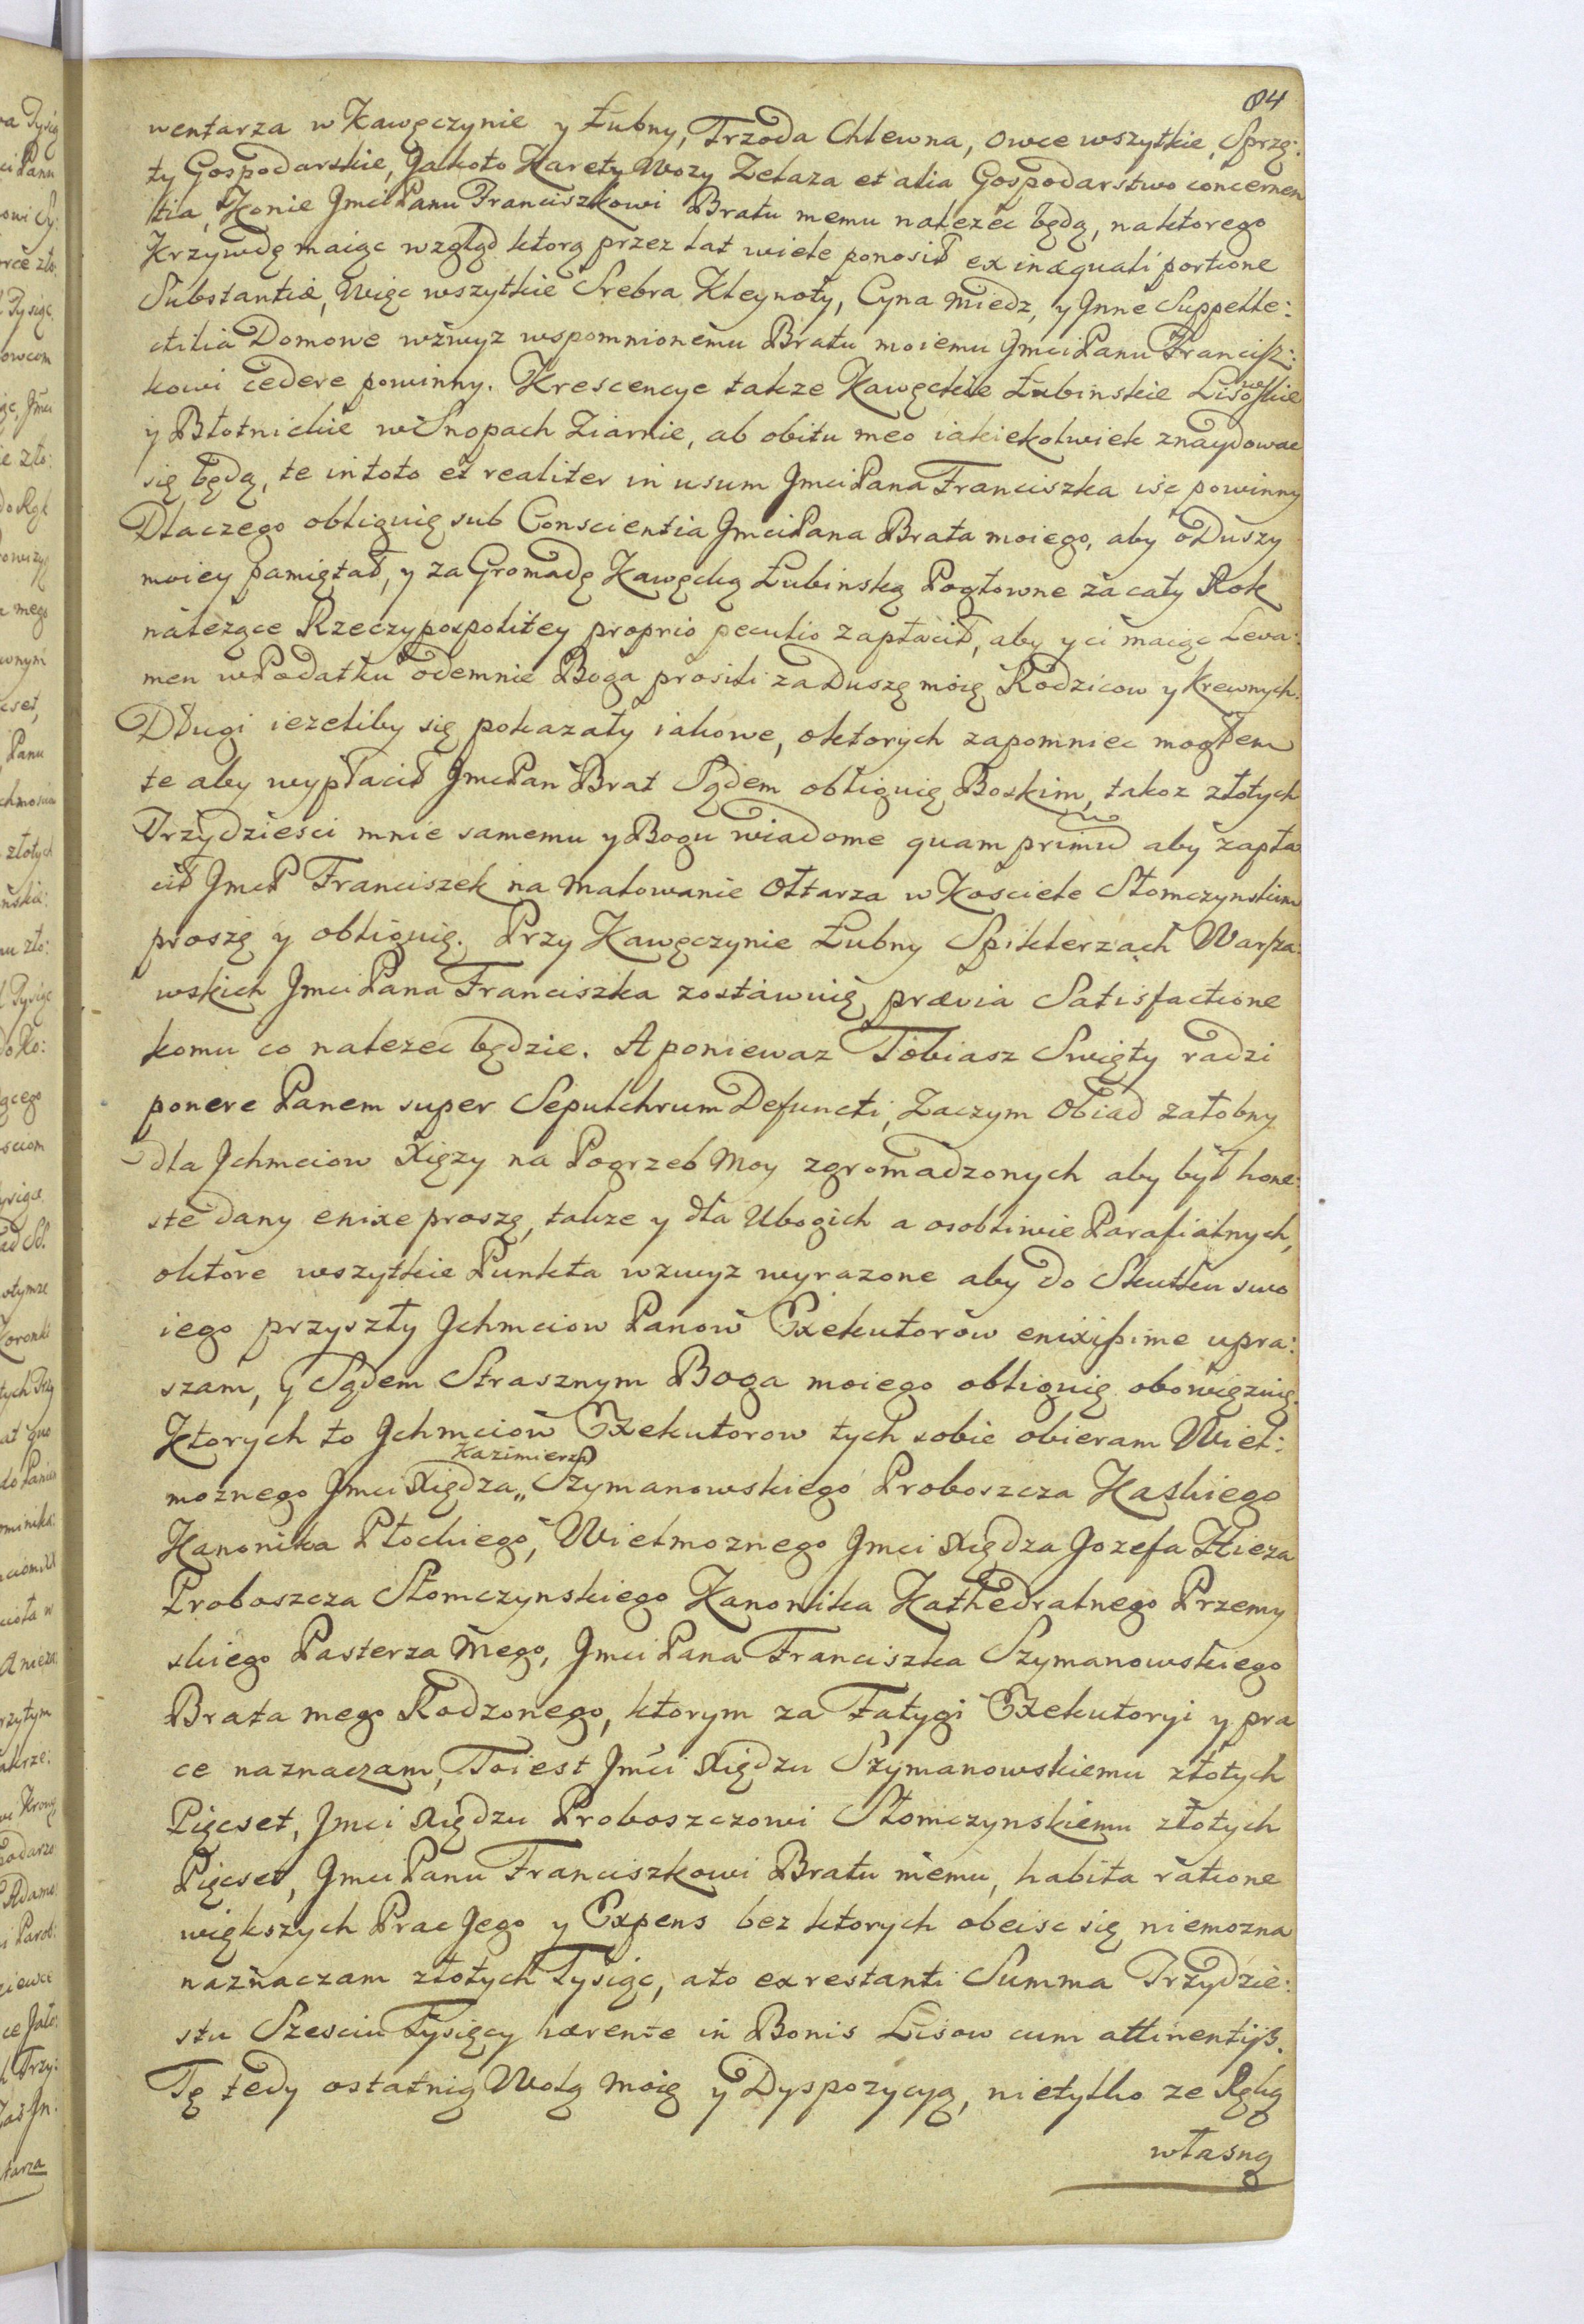 84
wentarza w Kawęczynie y Łubny, Trzoda Chlewna, owce wszytkie, Sprzę:
ty Gospodarskie, Jakoto Karety Wozy Zelaza et alia Gospodarstwo concernen
tia, Konie Jmci Panu Franciszkowi Bratu memu nalezec będą, na ktorego
Krzywdę maiąc wzgląd ktorą przez lat wiele ponosił ex inæquali portione
Substantiæ, Więc wszytkie Srebra Kleynoty, Cyna Miedz, y Jnne Suppelle:
ctilia Domowe wzwyz wspomnionemu Bratu moiemu Jmci Panu Francisz:
kowi cedere powinny. Krescencye takze Kawęckie Łubinskie Lisowskie
y Błotnickie w Snopach Ziarnie, ab obitu meo iakiekolwiek znaydowac
się będą, te in toto et realiter in usum Jmci Pana Franciszka iśc powinny
Dlaczego obliguię sub Conscientia Jmci Pana Brata moiego, aby o Duszy
moiey pamiętał, y za Gromadę Kawęcką Łubinską Pogłowne za cały Rok
nalezące Rzeczypospolitey proprio peculio zapłacił, aby y ci maiąc Leva:
men w Podatku odemnie Boga prosili za Duszę moię Rodzicow y Krewnych.
Długi iezeliby się pokazały iakowe, o ktorych zapomniec mogłem
te aby wypłacił Jmc Pan Brat Sądem obliguię Boskim, takoz złotych
Trzydziesci mnie samemu y Bogu wiadome quam primum aby zapła
cił JmcP Franciszek na malowanie Ołtarza w Kosciele Słomczynskim
proszę y obliguię. Przy Kawęczynie Łubny Spiklerzach Warsza:
wskich Jmci Pana Franciszka zostawuię, prævia Satisfactione
komu co nalezec będzie. A poniewaz Tobiasz Swięty radzi
ponere Panem super Sepulchrum Defuncti, Zaczym Obiad załobny
dla Jchmciow Xięzy na Pogrzeb Moy zgromadzonych aby był hone:
ste dany enixe proszę, takze y dla Ubogich a osobliwie Parafialnych,
o ktore wszytkie Punkta wzwyz wyrazone aby do Skutku swo
iego przyszły Jchmciow Panow Exekutorow enixissime upra:
szam, y Sądem Strasznym Boga moiego obliguię obowięzuię.
Ktorych to Jchmciow Exekutorow tych sobie obieram Wiel:
Kazimierza
moznego Jmci Xiędza „ Szymanowskiego Proboszcza Kaskiego
Kanonika Płockiego, Wielmoznego Jmci Xiędza Jozefa Kieza
Proboszcza Słomczynskiego Kanonika Kathedralnego Przemy
skiego Pasterza Mego, Jmci Pana Franciszka Szymanowskiego
Brata mego Rodzonego, ktorym za Fatygi Exekutoryi y pra
ce naznaczam, To iest Jmci Xiędzu Szymanowskiemu złotych
Pięcset, Jmci Xiędzu Proboszczowi Słomczynskiemu złotych
Pięcset, Jmci Panu Franciszkowi Bratu memu, habita ratione
większych Prac Jego y Expens bez ktorych obeisc się niemozna
naznaczam złotych Tysiąc, a to ex restanti Summa Trzydzie:
stu Szesciu Tysięcy hærente in Bonis Lisow cum attinentijs.
Tę tedy ostatnią Wolą Moię y Dyspozycyą, nietylko ze Ręką
własną